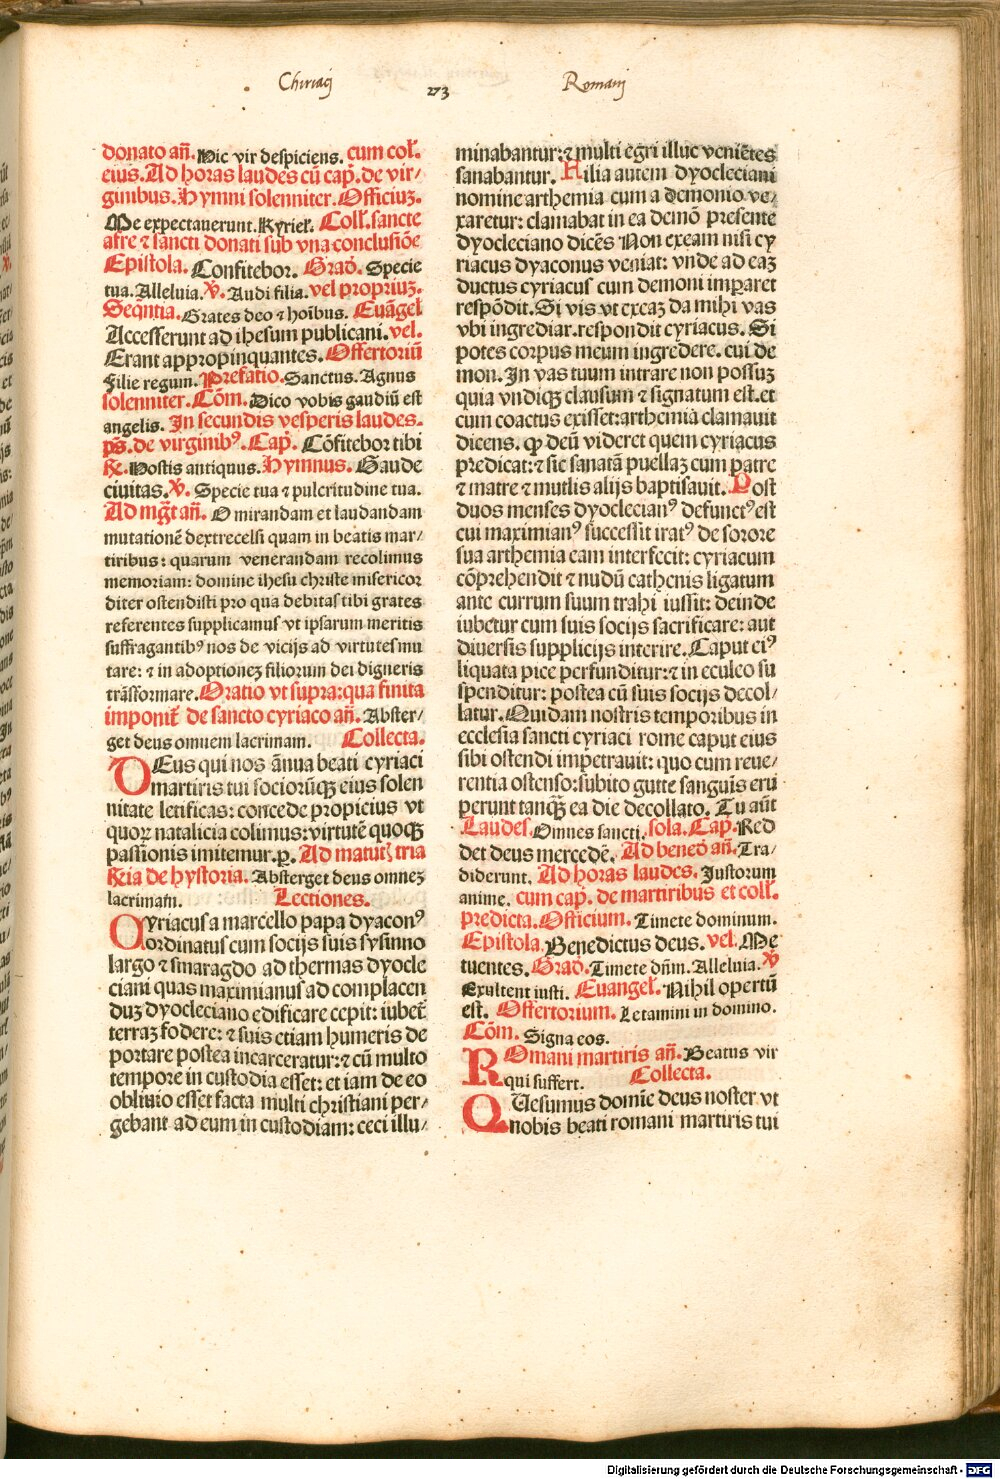 Chiriacj
273
Romanj
donato añ. Hic vir despiciens. cum coł.
eius. Ad horas laudes cũ cap̃. de vir/
ginibus. Hymni solenniter. Officiuꝫ.
Me expectauerunt. Kyrieł. Coll̃. sancte
afre ⁊ sancti donati sub vna conclusiõe
Epistola. Confitebor. Grad̃. Specie
tua. Alleluia. ℣. Audi filia. vel propriuꝫ.
Seq̃ntia. Grates deo ⁊ hoĩbus. Euãgeł
Accesserunt ad ihesum publicani. vel.
Erant appropinquantes. Offertoriũ
Filie regum. Prefatio. Sanctus. Agnus
solenniter. Cõm. Dico vobis gaudiũ est
angelis. In secundis vesperis laudes.
ps̃. de virginibꝰ. Cap̃. Cõfitebor tibi
℟. Hostis antiquus. Hymnus. Gaude
ciuitas. ℣. Specie tua ⁊ pulcritudine tua.
Ad mg̃t añ. O mirandam et laudandam
mutationẽ dextrecelsi quam in beatis mar/
tiribus: quarum venerandam recolimus
memoriam: domine ihesu christe misericor
diter ostendisti pro qua debitas tibi grates
referentes supplicamus vt ipsarum meritis
suffragantibꝰ nos de vicijs ad virtutes mu
tare: ⁊ in adoptioneꝫ filiorum dei digneris
trãsformare. Oratio vt supra: qua finita
imponit̃ de sancto cyriaco añ. Abster/
get deus omnem lacrimam. Collecta.
DEus qui nos ãnua beati cyriaci
martiris tui sociorũqꝫ eius solen
nitate letificas: concede propicius vt
quoꝝ natalicia colimus: virtutẽ quoqꝫ
passionis imitemur. p. Ad matut̃ tria
℟ia de hystoria. Absterget deus omneꝫ
lacrimam. Lectiones.
Cyriacus a marcello papa dyaconꝰ
ordinatus cum socijs suis sysinno
largo ⁊ smaragdo ad thermas dyocle
ciani quas maximianus ad complacen
duꝫ dyocleciano edificare cepit: iubet̃
terraꝫ fodere: ⁊ suis etiam humeris de
portare postea incarceratur: ⁊ cũ multo
tempore in custodia esset: et iam de eo
obliuio esset facta multi christiani per/
gebant ad eum in custodiam: ceci illu/
minabantur: ⁊ multi egri illuc veniẽtes
sanabantur. Filia autem dyocleciani
nomine arthemia cum a demonio ve/
xaretur: clamabat in ea demõ presente
dyocleciano dicẽs Non exeam nisi cy
riacus dyaconus veniat: vnde ad eaꝫ
ductus cyriacus cum demoni imparet
respõdit. Si vis vt exeaꝫ da mihi vas
vbi ingrediar. respondit cyriacus. Si
potes corpus meum ingredere. cui de
mon. In vas tuum intrare non possuꝫ
quia vndiqꝫ clausum ⁊ signatum est. et
cum coactus exisset: arthemia clamauit
dicens. ꝙ deũ videret quem cyriacus
predicat: ⁊ sic sanatã puellaꝫ cum patre
⁊ matre ⁊ mutlis alijs baptisauit. Post
duos menses dyoclecianꝰ defunctꝰ est
cui maximianꝰ successit iratꝰ de sorore
sua arthemia eam interfecit: cyriacum
cõprehendit ⁊ nudũ cathenis ligatum
ante currum suum trahi iussit: deinde
iubetur cum suis socijs sacrificare: aut
diuersis supplicijs interire. Caput eiꝰ
liquata pice perfunditur: ⁊ in eculeo su
spenditur: postea cũ suis socijs decol/
latur. Quidam nostris temporibus in
ecclesia sancti cyriaci rome caput eius
sibi ostendi impetrauit: quo cum reue/
rentia ostenso: subito gutte sanguĩs eru
perunt tanqꝫ ea die decollato. Tu aũt
Laudes. Omnes sancti. sola. Cap̃. Red
det deus mercedẽ. Ad bened̃ añ. Tra/
diderunt. Ad horas laudes. Justorum
anime. cum cap̃. de martiribus et coll̃.
predicta. Officium. Timete dominum.
Epistola. Benedictus deus. vel. Me
tuentes. Grad̃. Timete dñm. Alleluia. ℣
Exultent iusti. Euangeł. Nihil opertũ
est. Offertorium. Letamini in domino.
Cõm. Signa eos.
ROmani martiris añ. Beatus vir
qui suffert. Collecta.
QUesumus domĩe deus noster vt
nobis beati romani martiris tui
Digitalisierung gefördert durch die Deutsche Forschungsgemeinschaft - DFG